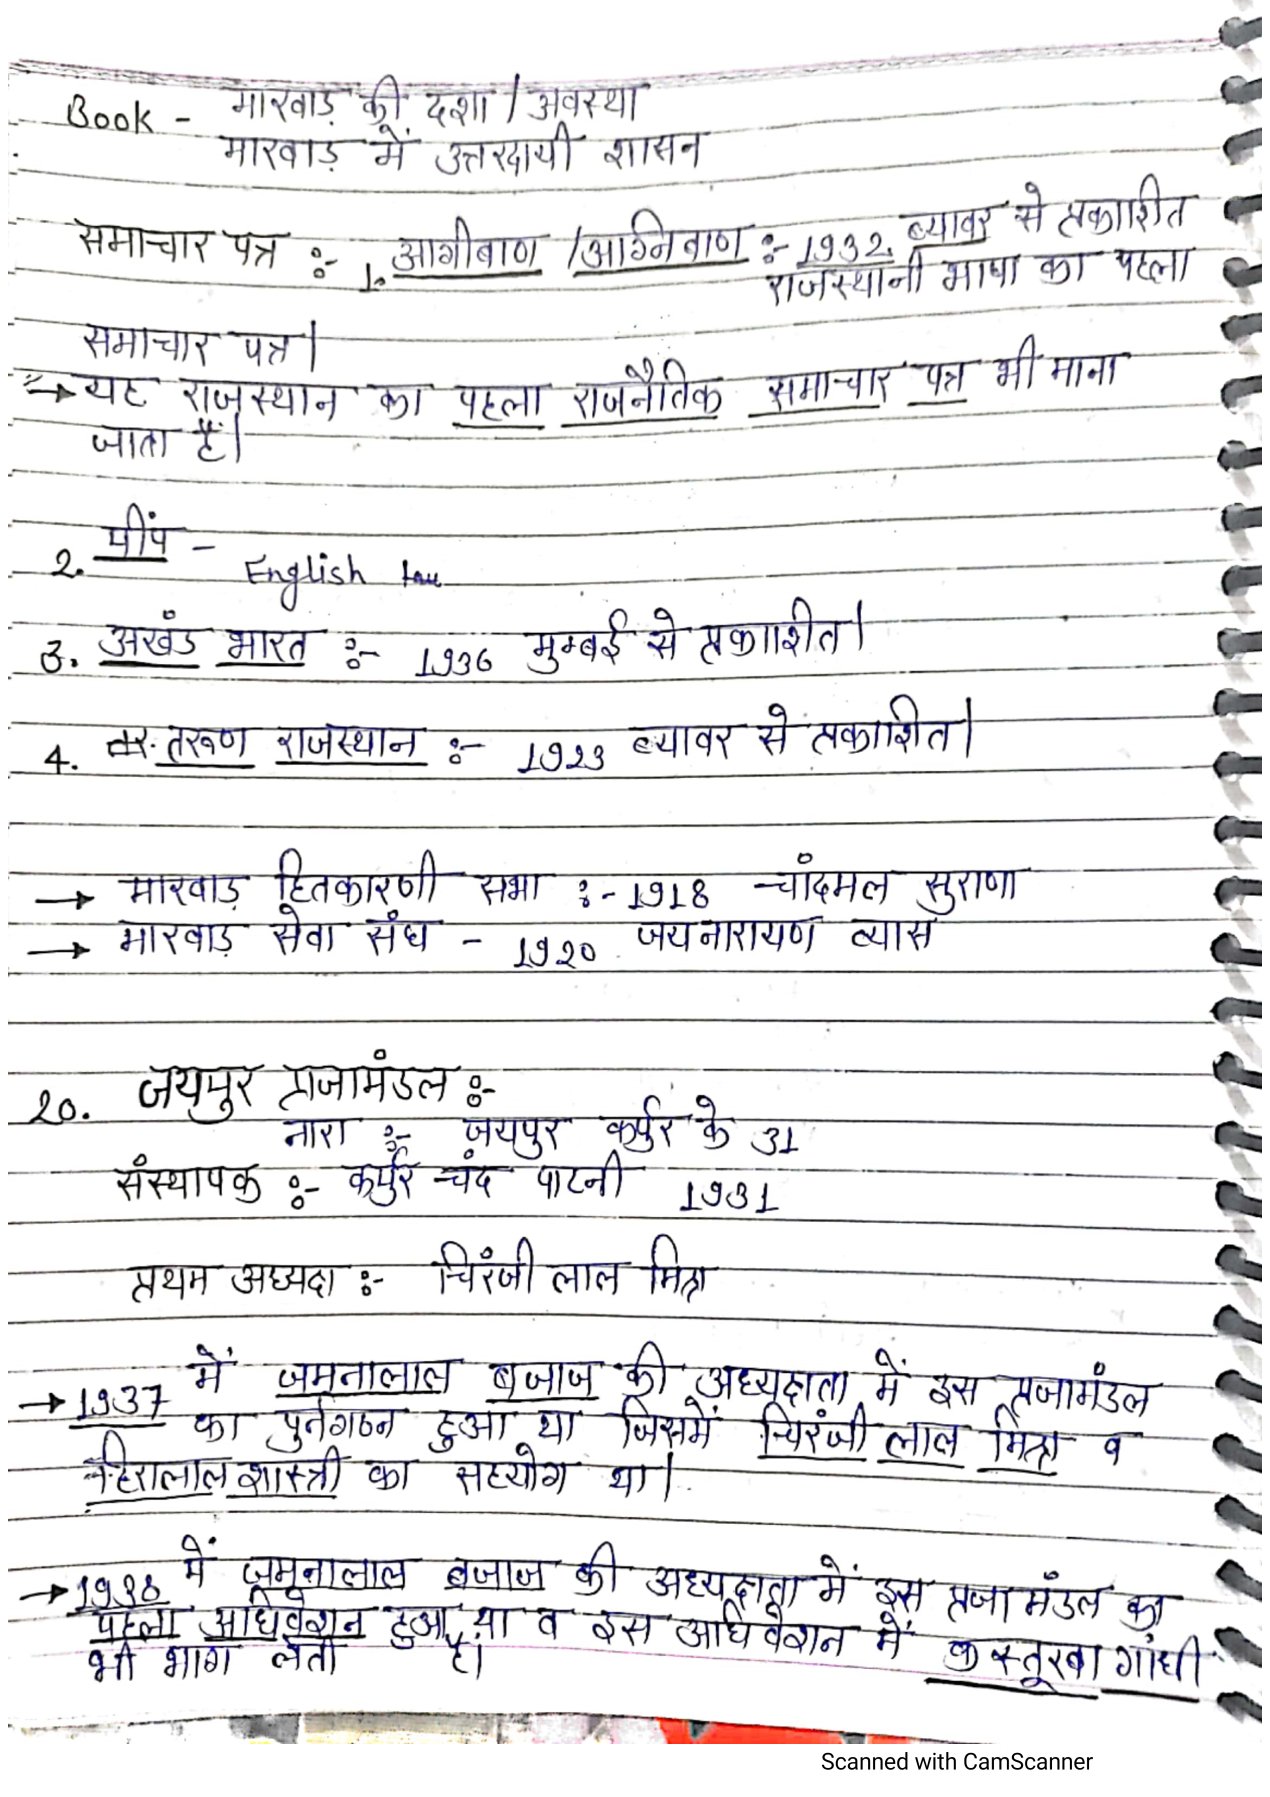 Book - मारवाड़ की दशा / अवस्था
मारवाड़ में उत्तरदायी शासन
समाचार पत्र :- 1. आगीबाण / अग्निबाण :- 1932 ब्यावर से प्रकाशित
राजस्थानी भाषा का पहला
समाचार पत्र।
→ यह राजस्थान का पहला राजनैतिक समाचार पत्र भी माना
जाता है।
2. पीप - English
3. अखंड भारत :- 1936 मुम्बई से प्रकाशित।
4. तरुण राजस्थान :- 1923 ब्यावर से प्रकाशित।
→ मारवाड़ हितकारणी सभा :- 1918 चांदमल सुराणा
→ मारवाड़ सेवा संघ - 1920 जयनारायण व्यास
20. जयपुर प्रजामंडल :-
नारा :- जयपुर कर्पुर के 31
संस्थापक :- कर्पुर चंद पाटनी 1931
प्रथम अध्यक्ष :- चिरंजी लाल मिश्र
→ 1937 में जमनालाल बजाज की अध्यक्षता में इस प्रजामंडल
का पुर्नगठन हुआ था जिसमें चिरंजी लाल मिश्र व
हिरालाल शास्त्री का सहयोग था।
→ 1938 में जमूनालाल बजाज की अध्यक्षता में इस प्रजामंडल का
पहला अधिवेशन हुआ था व इस अधिवेशन में कस्तूरबा गांधी
भी भाग लेती है।
Scanned with CamScanner